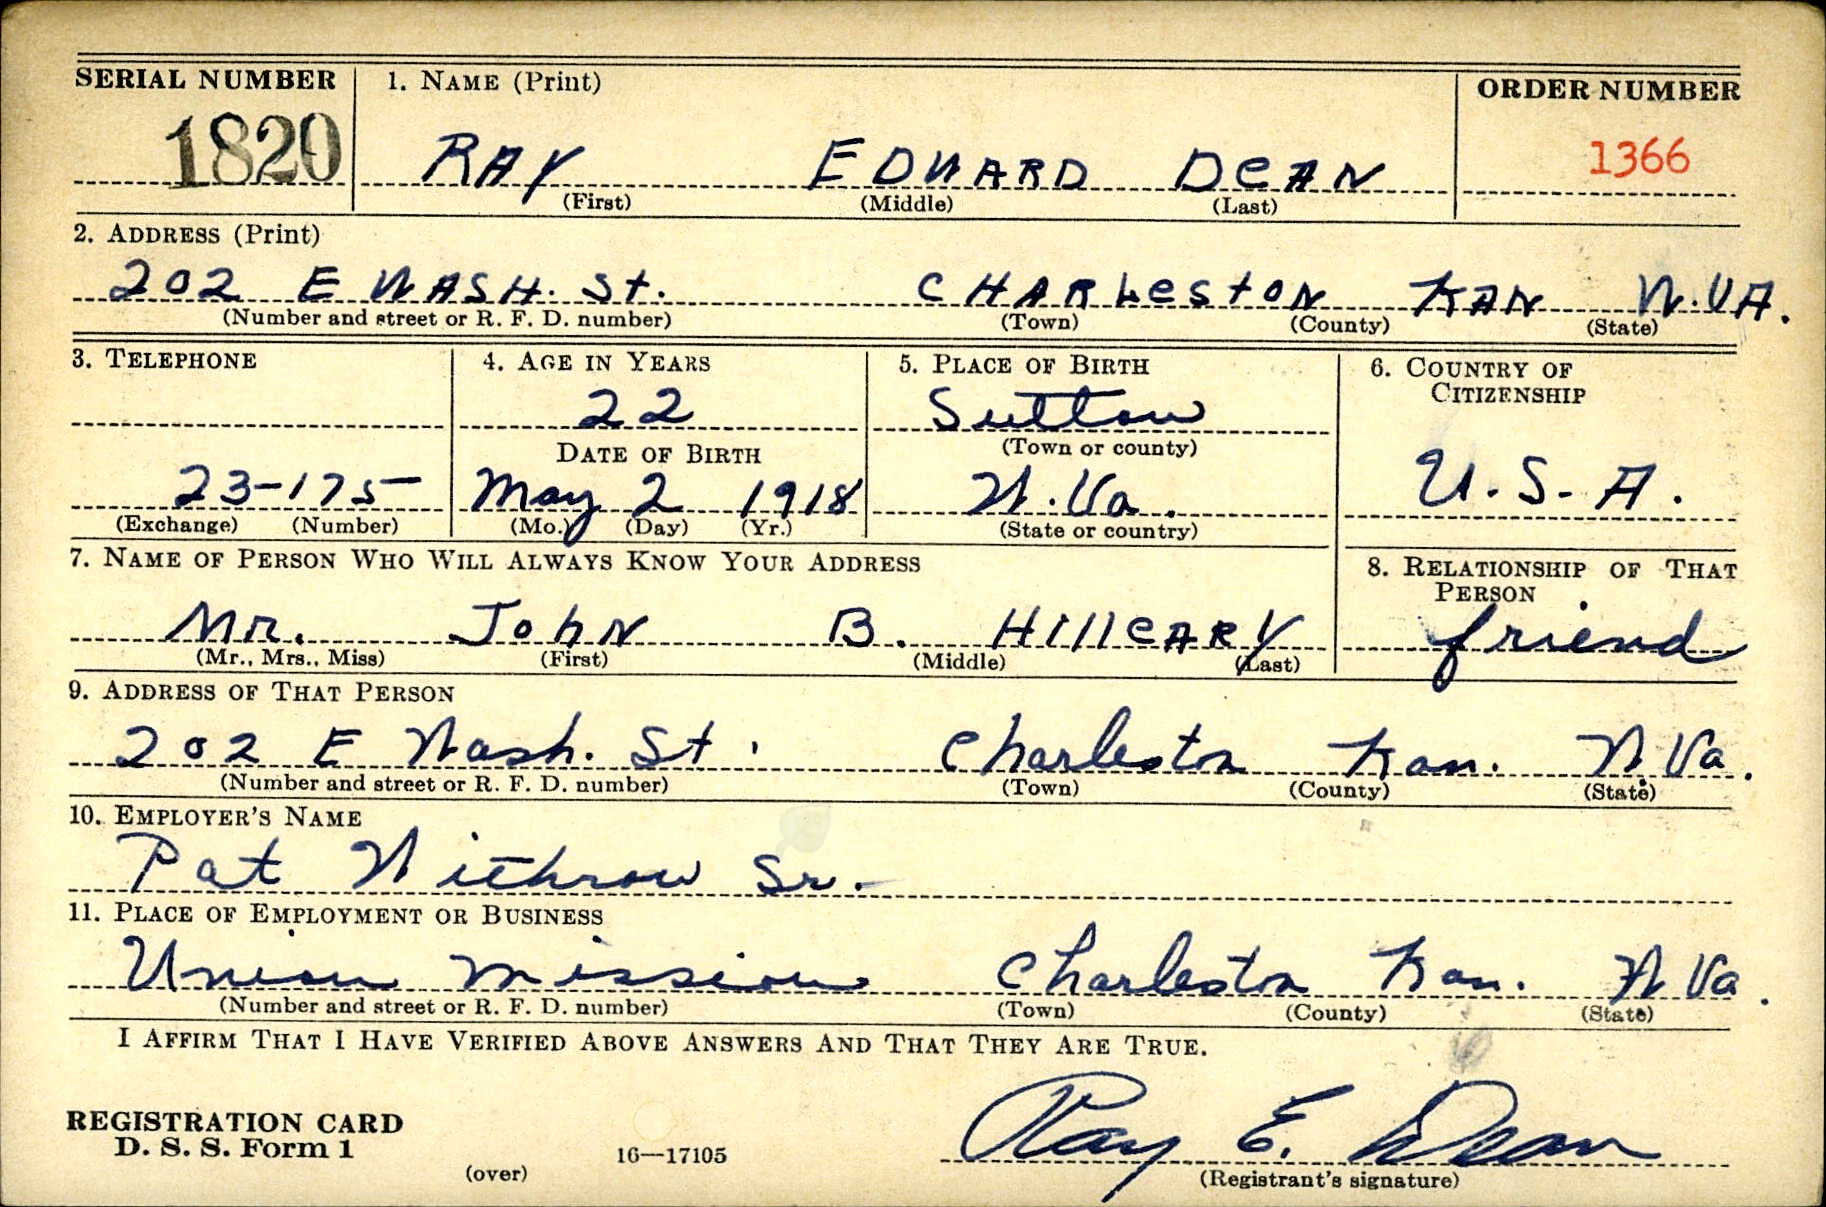 SERIAL NUMBER 1. NAME (Print) ORDER NUMBER
1820 RAY EDWARD DeAN 1366
(First) (Middle) (Last)
2. ADDRESS (Print)
202 E WASH. St. CHARLestoN KAN W.VA.
(Number and street or R. F. D. number) (Town) (County) (State)
3. TELEPHONE 4. AGE IN YEARS 5. PLACE OF BIRTH 6. COUNTRY OF CITIZENSHIP
22 Sutton
DATE OF BIRTH (Town or county)
23-175 May 2 1918 W.Va. U.S.A.
(Exchange) (Number) (Mo.) (Day) (Yr.) (State or country)
7. NAME OF PERSON WHO WILL ALWAYS KNOW YOUR ADDRESS 8. RELATIONSHIP OF THAT PERSON
Mr. JohN B. HilleARY friend
(Mr., Mrs., Miss) (First) (Middle) (Last)
9. ADDRESS OF THAT PERSON
202 E Wash. St. Charleston Kan. W.Va.
(Number and street or R. F. D. number) (Town) (County) (State)
10. EMPLOYER'S NAME
Pat Withrow Sr.
11. PLACE OF EMPLOYMENT OR BUSINESS
Union Mission Charleston Kan. W Va.
(Number and street or R. F. D. number) (Town) (County) (State)
I AFFIRM THAT I HAVE VERIFIED ABOVE ANSWERS AND THAT THEY ARE TRUE.
REGISTRATION CARD
D. S. S. Form 1 16—17105 Ray E. Dean
(over) (Registrant's signature)